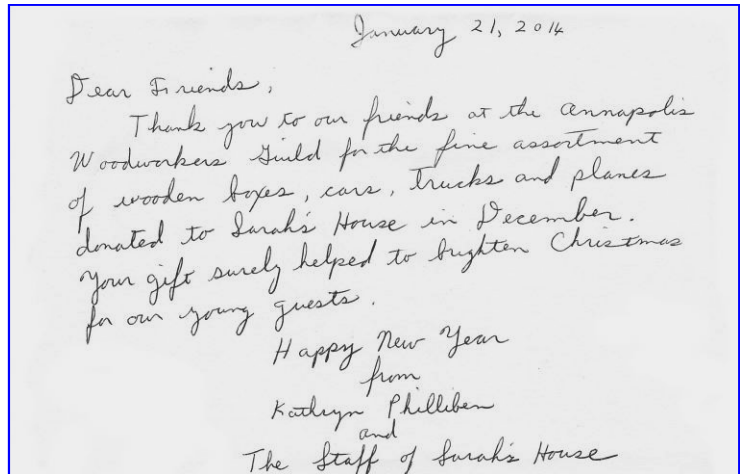 January 21, 2014
Dear Friends,
Thank you to our friends at the Annapolis
Woodworkers Guild for the fine assortment
of wooden boxes, cars, trucks and planes
donated to Sarah's House in December.
Your gift surely helped to brighten Christmas
for our young guests.
Happy New Year
from
Kathryn Philliben
and
The Staff of Sarah's House